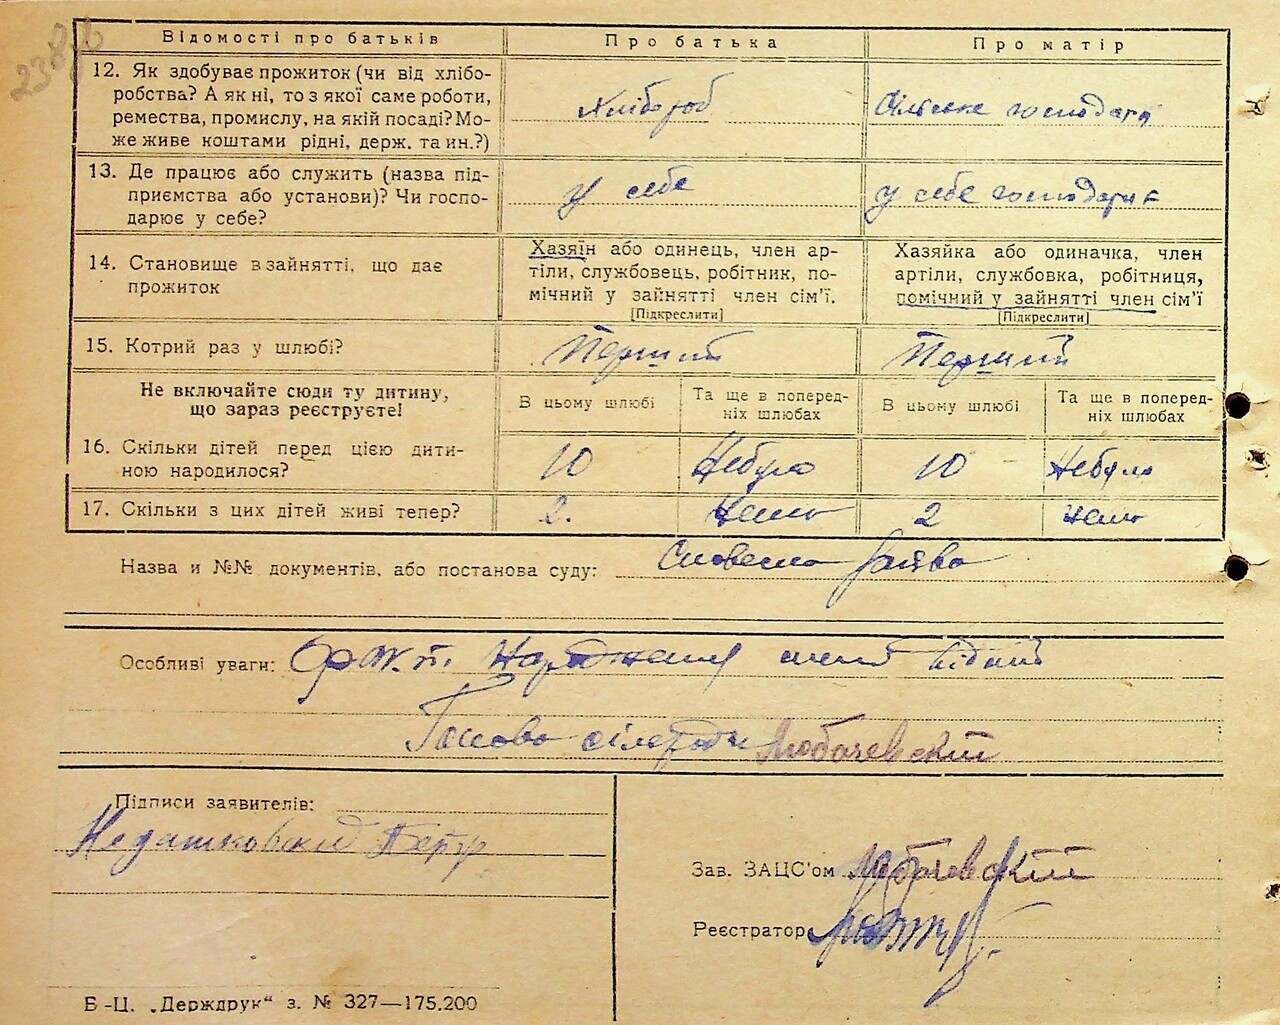 238зв
Відомості про батьків
Про батька
Про матір
12. Як здобуває прожиток (чи від хлібо-
робства? А як ні, то з якої саме роботи,
ремества, промислу, на якій посаді? Мо-
же живе коштами рідні, держ. та ин.?)
Хлібороб
Сільське господаря
13. Де працює або служить (назва під-
приємства або установи)? Чи госпо-
дарює у себе?
у себе
у себе господарює
14. Становище в зайнятті, що дає
прожиток
Хазяїн або одинець, член ар-
тіли, службовець, робітник, по-
мічний у зайнятті член сім'ї.
[Підкреслити]
Хазяйка або одиначка, член
артіли, службовка, робітниця,
помічний у зайнятті член сім'ї
[Підкреслити]
15. Котрий раз у шлюбі?
Перший
Перший
Не включайте сюди ту дитину,
що зараз реєструєте!
В цьому шлюбі
Та ще в поперед-
ніх шлюбах
В цьому шлюбі
Та ще в поперед-
ніх шлюбах
16. Скільки дітей перед цією дити-
ною народилося?
10
Небуло
10
Небуло
17. Скільки з цих дітей живі тепер?
2.
Нема
2
Нема
Назва и №№ документів, або постанова суду:
Словесна заява
Особливі уваги:
Факт народження мені відний
Голова сілради Любачевский
Підписи заявителів:
Недашковский Петр
Зав. ЗАЦС'ом
Любачевский
Реєстратор
Б-Ц. „Держдрук“ з. № 327—175.200